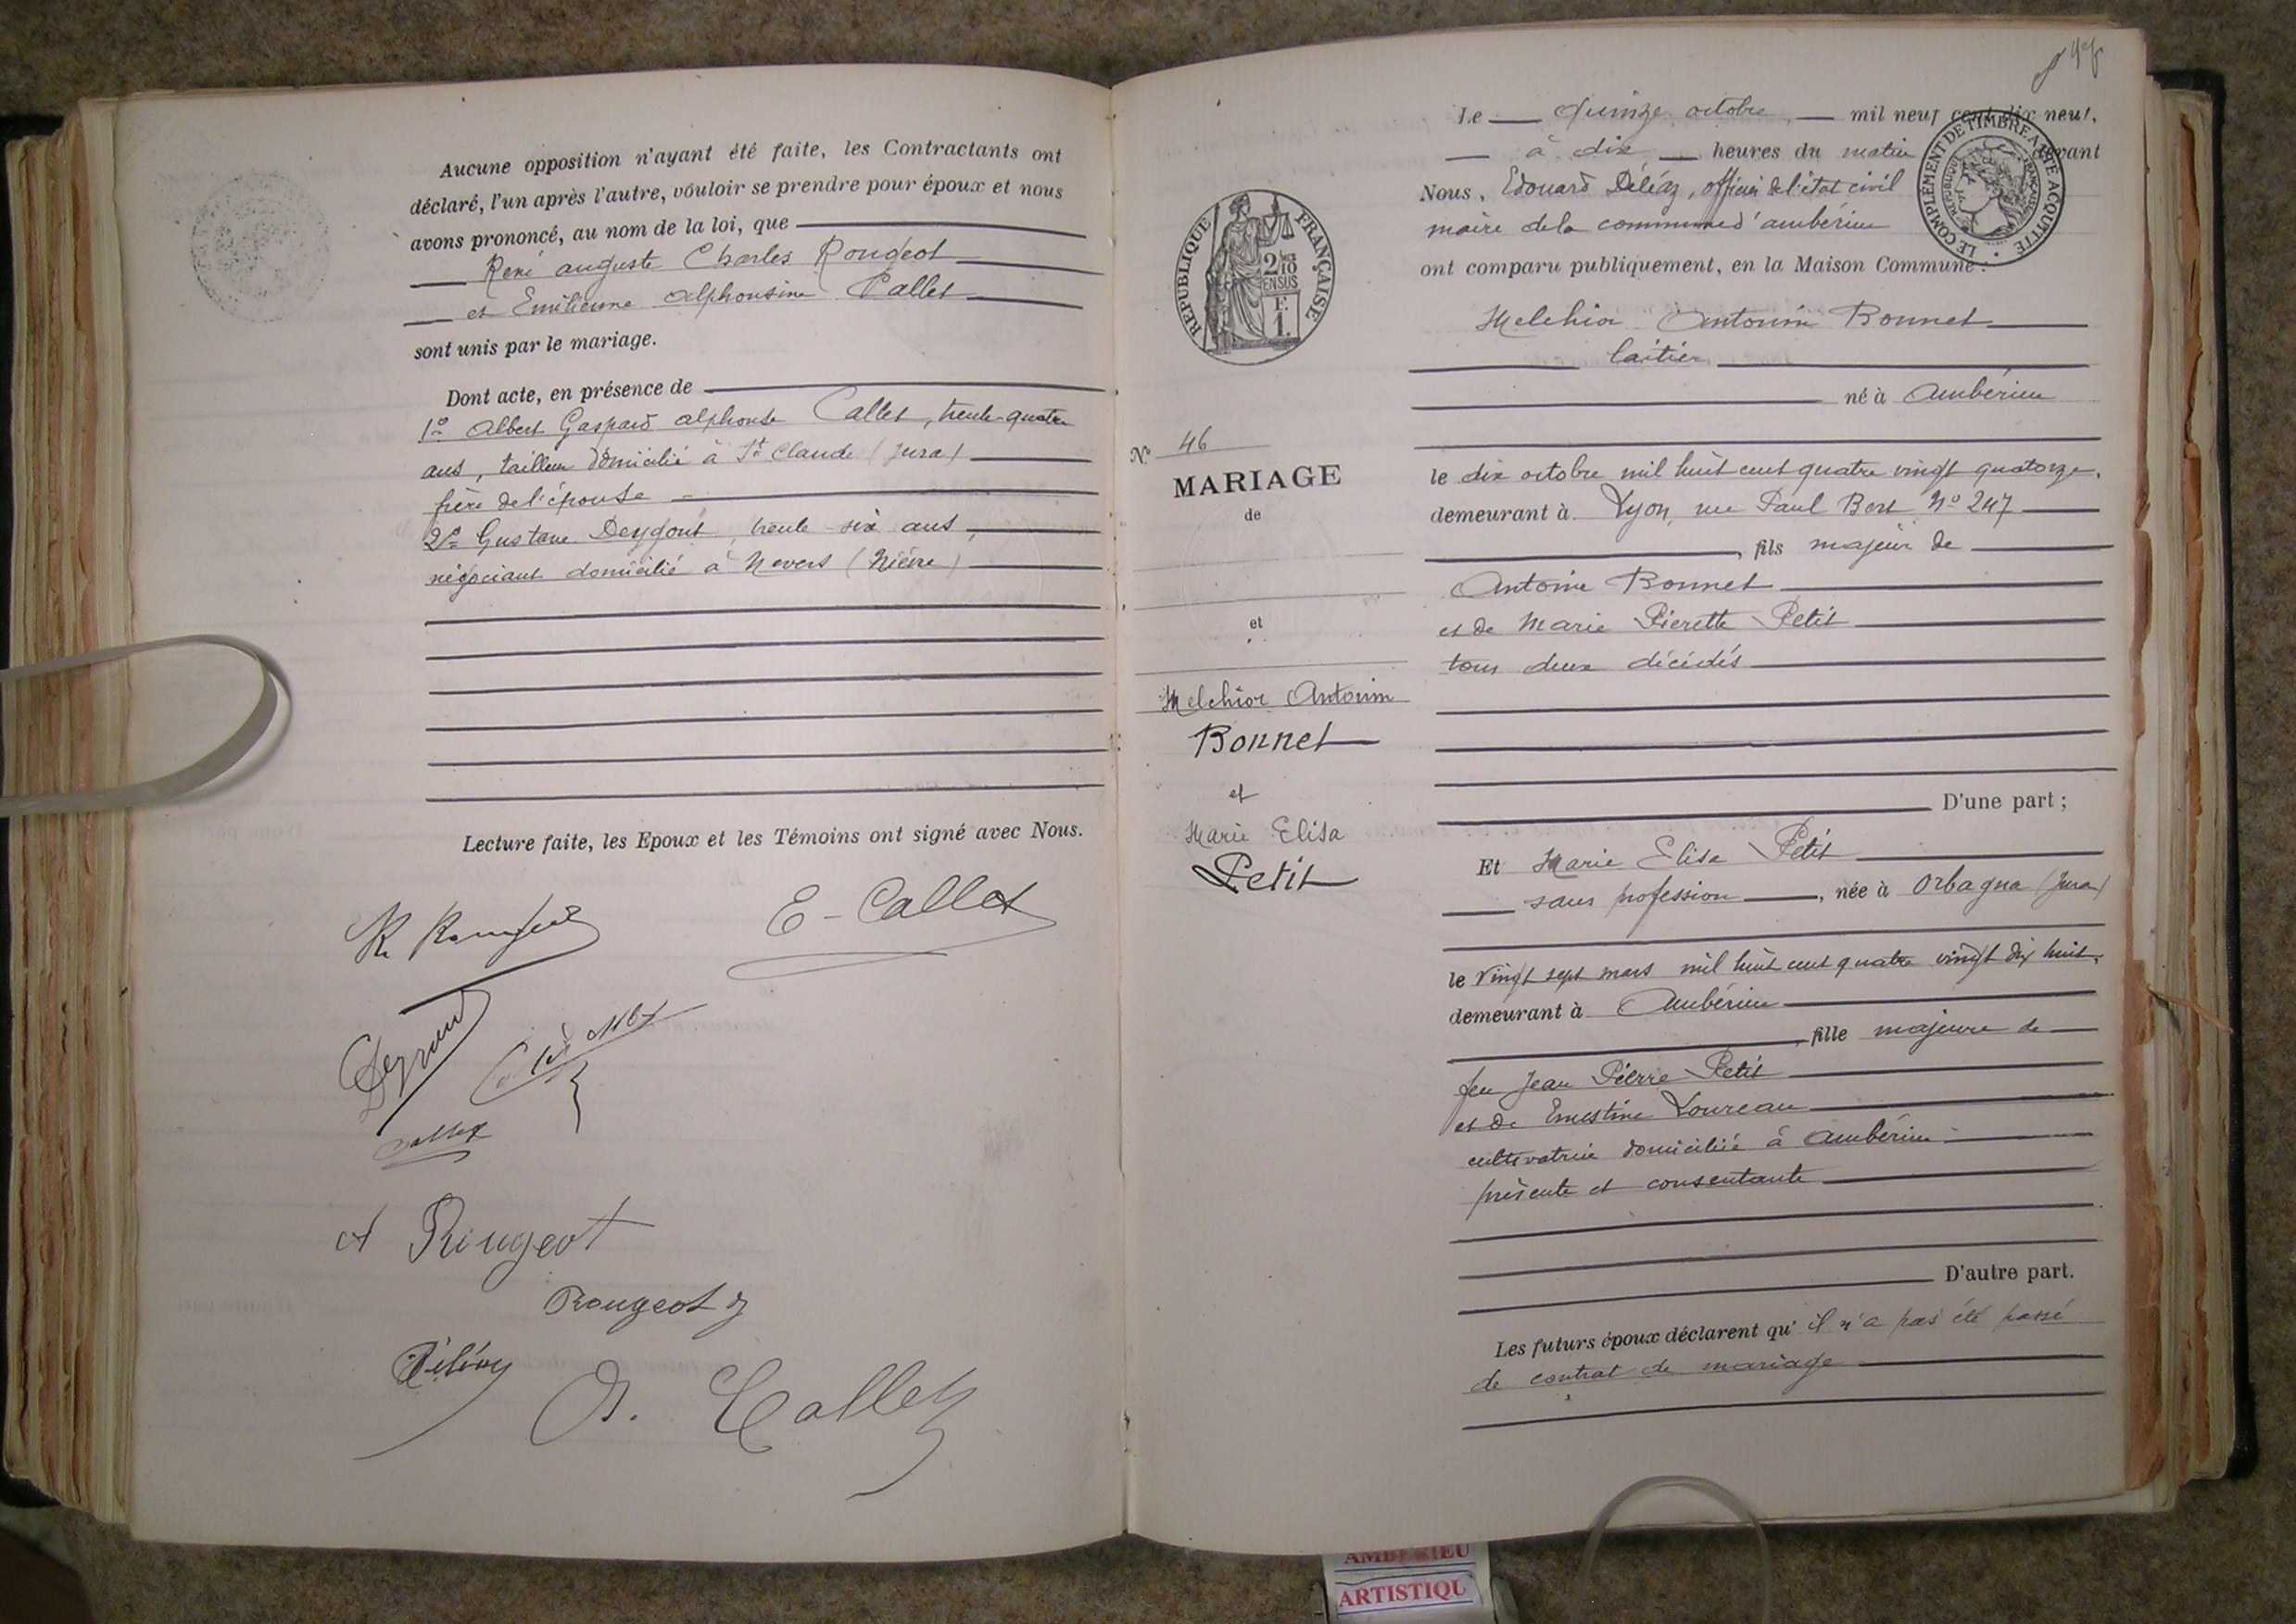 Aucune opposition n'ayant été faite, les Contractants ont
déclaré, l'un après l'autre, vouloir se prendre pour époux et nous
avons prononcé, au nom de la loi, que
René auguste Charles Rougeot
et Emilienne alphonsine Callet
sont unis par le mariage.
Dont acte, en présence de
1º Albert Gaspard alphonse Callet, trente-quatre
ans, tailleur domicilié à St Claude (Jura)
frère de l'épouse
2º Gustave Deygout, trente-six ans,
négociant domicilié à Nevers (Nièvre)
Lecture faite, les Epoux et les Témoins ont signé avec Nous.
E - Callet
Rougeot
Rougeot
Callet
Le quinze octobre mil neuf cent dix neuf,
à dix heures du matin devant
Nous, Edouard Deléaz, officier de l'état civil
maire de la commune d'ambérieu
ont comparu publiquement, en la Maison Commune :
LE COMPLÉMENT DE TIMBRE A ÉTÉ ACQUITTÉ
REPUBLIQUE FRANÇAISE
REPUBLIQUE FRANÇAISE
2/10 EN SUS
F.
1.
Melchior Antonin Bonnet
laitier
né à Ambérieu
le dix octobre mil huit cent quatre vingt quatorze,
demeurant à Lyon, rue Paul Bert Nº 247
, fils majeur de
Antoine Bonnet
et de Marie Pierette Petit
tous deux décédés
D'une part ;
Nº 46
MARIAGE
de
et
Melchior Antonin
Bonnet
et
Marie Elisa
Petit
Et Marie Elisa Petit
sans profession, née à Orbagna (Jura)
le vingt sept mars mil huit cent quatre vingt dix huit,
demeurant à Ambérieu
, fille majeure de
feu Jean Pierre Petit
et de Ernestine Loureau
cultivatrice domiciliée à Ambérieu
présente et consentante
D'autre part.
Les futurs époux déclarent qu'il n'a pas été passé
de contrat de mariage
AMBERIEU
ARTISTIQU